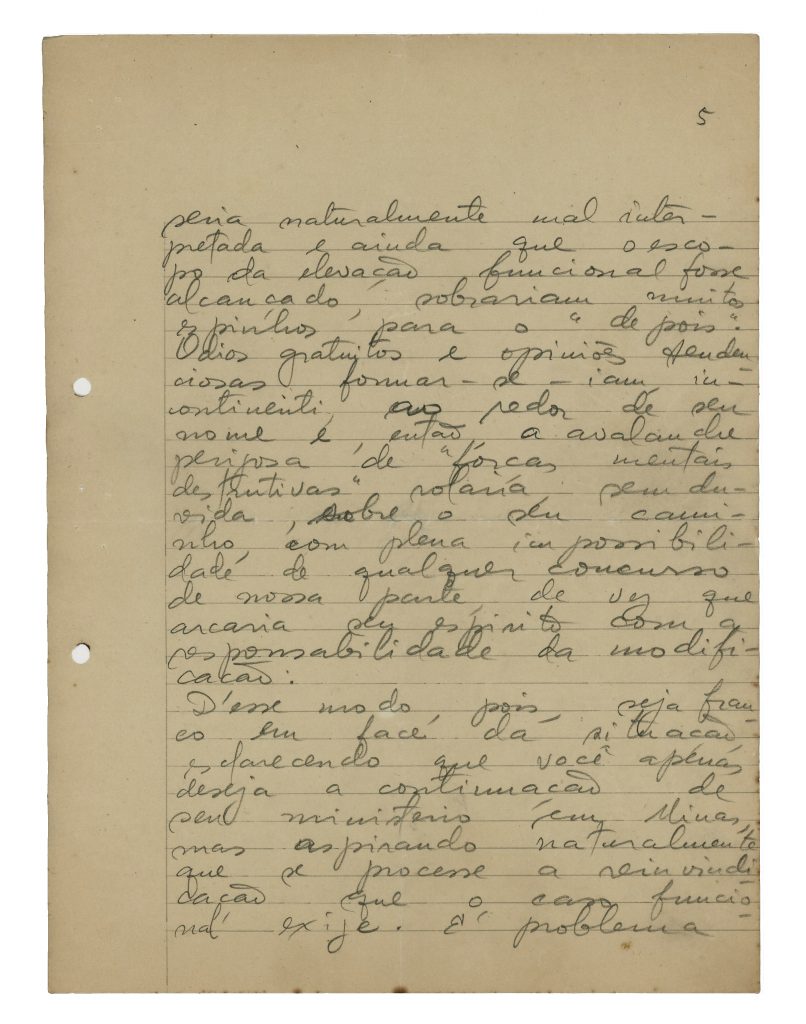 5
seria naturalmente mal inter-
pretada e ainda que o esco-
po da elevação funcional fosse
alcançado, sobrariam muitos
espinhos para o "depois".
Odios gratuitos e opiniões tenden
ciosas formar-se-iam, in-
continenti, ao redor de seu
nome e, então, a avalanche
perigosa de "forças mentais
destrutivas" rolaria, sem du-
vida, sobre o seu cami-
nho, com plena impossibili-
dade de qualquer concurso
de nossa parte, de vez que
arcaria seu espirito com a
responsabilidade da modifi-
cação.
D'esse modo, pois, seja fran-
co em face da situação
esclarecendo que você apenas
deseja a continuação de
seu ministerio em Minas,
mas aspirando naturalmente
que se processe a reinvindi
cação que o caso funcio-
nal exige. É problema